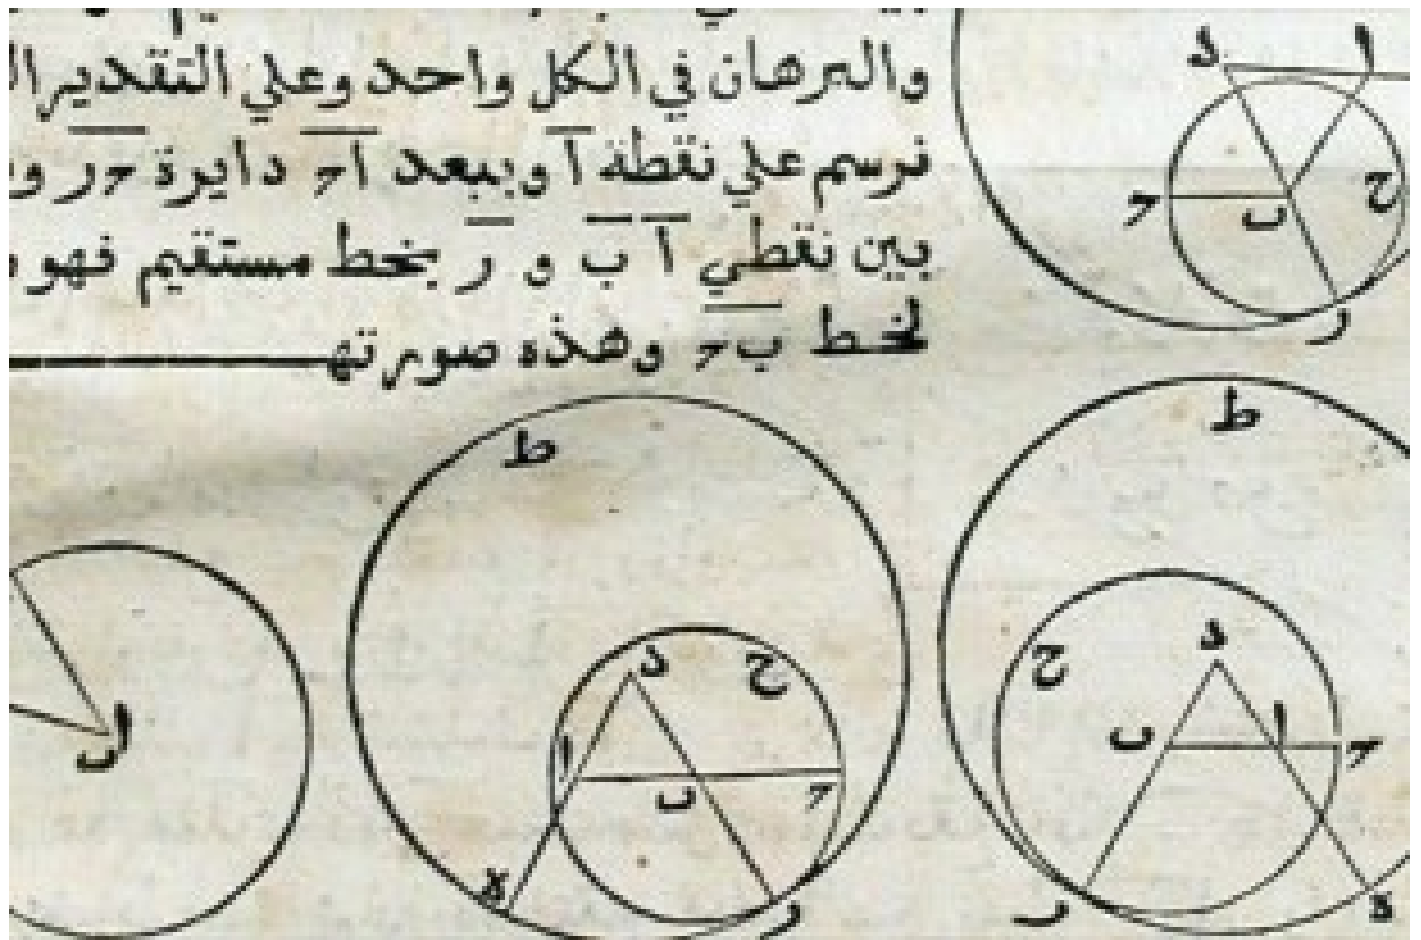 والبرهان في الكل واحد وعلي التقدير
نرسم علي نقطة آ وببعد آح دايرة حر
بين نقطي آ ب و ر بخط مستقيم فهو
لخط ب ح وهذه صورتها
د ا
ح ب ح
ر
ط ط
د ح
ح د
ا ب ح
ب ا ح
ل
ه ر
ر ه